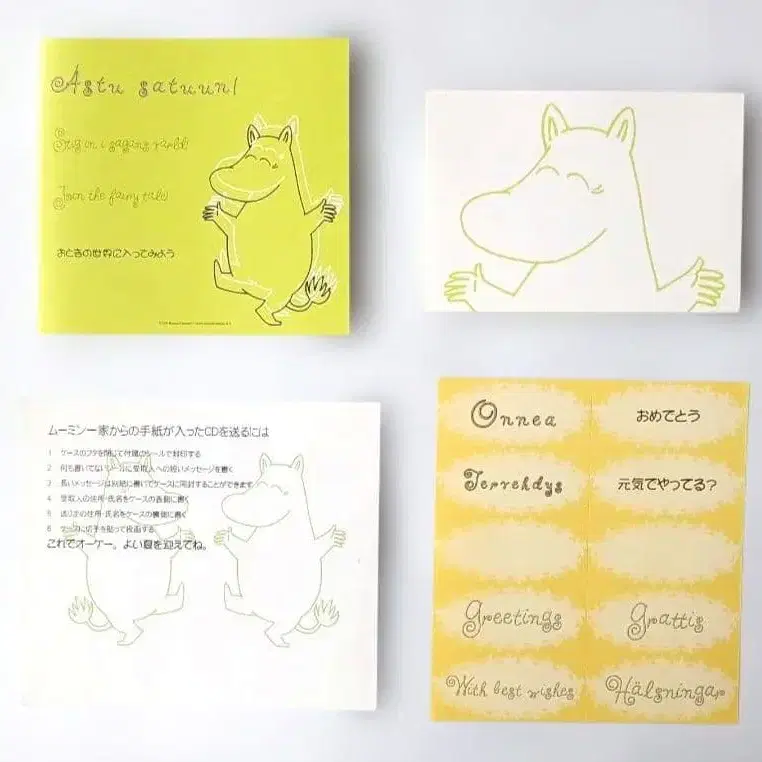 Astu satuun!
Stig in i sagans värld!
Join the fairy tale!
おとぎの世界に入ってみよう
ムーミン一家からの手紙が入ったCDを送るには
1 ケースのフタを閉じて付属のシールで封印する
2 何も書いてないシールに受取人への短いメッセージを書く
3 長いメッセージは別紙に書いてケースに同封することができます
4 受取人の住所・氏名をケースの表側に書く
5 送り主の住所・氏名をケースの裏側に書く
6 ケースに切手を貼って投函する
これでオーケー。よい夏を迎えてね。
Onnea
おめでとう
Tervehdys
元気でやってる?
Greetings
Grattis
With best wishes
Hälsningar